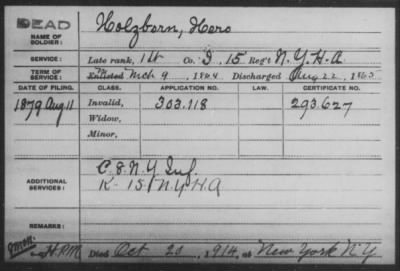 DEAD
NAME OF SOLDIER: Holzborn, Hero
SERVICE: Late rank, 1 Lt Co. I, 15 Reg't N.Y.H.A
TERM OF SERVICE: Enlisted Mch 9, 1864 Discharged Aug 22, 1865
DATE OF FILING. CLASS. APPLICATION NO. LAW. CERTIFICATE NO.
1879 Aug 11 Invalid, 303.118 293.627
Widow,
Minor,
C 8 N.Y. Inf.
ADDITIONAL SERVICES: K- 15 N.Y.H.A
REMARKS:
Died Oct 20, 1914, at New York N.Y.